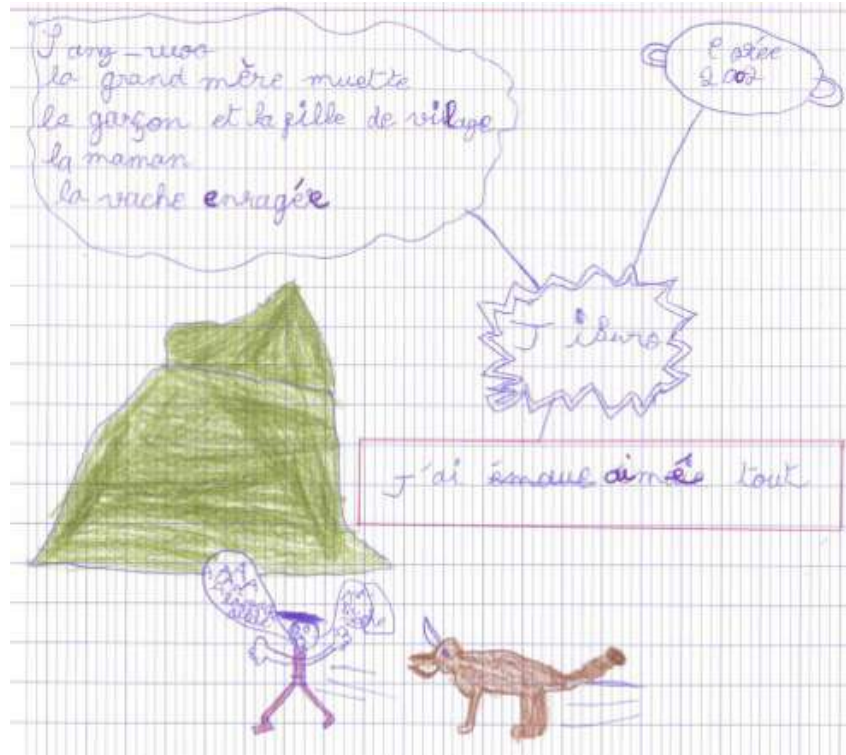 Sang-woo
la grand mère muette
le garçon et la fille de village
la maman
la vache enragée
Corée
2002
Jiburo
J'ai aimée tout